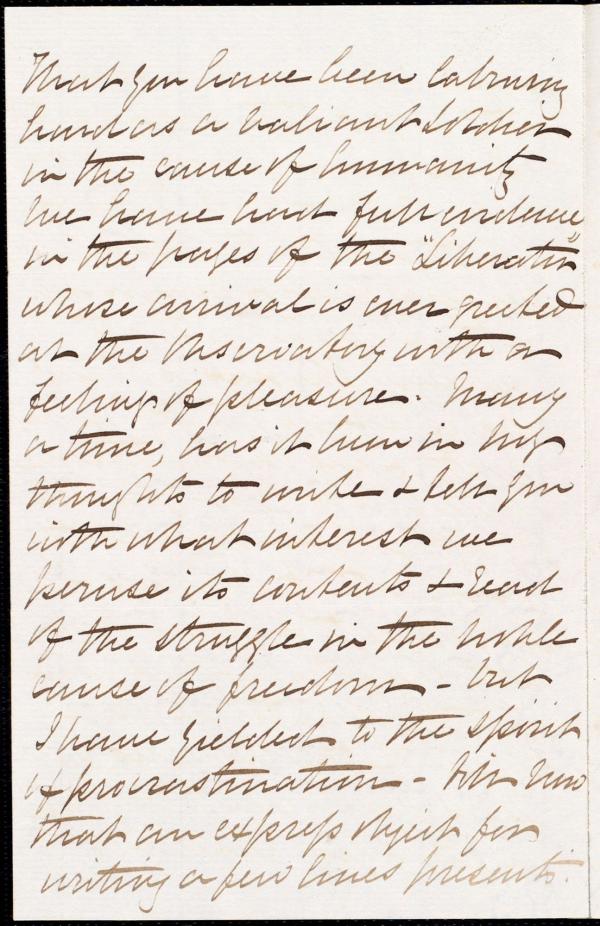 That you have been labouring
hard as a valiant soldier
in the cause of humanity
we have had full evidence
in the pages of the "Liberator"
whose arrival is ever greeted
at the Observatory with a
feeling of pleasure. Many
a time, has it been in my
thoughts to write & tell you
with what interest we
peruse its contents & read
of the struggle in the noble
cause of freedom - but
I have yielded to the spirit
of procrastination - till now
that an express object for
writing a few lines presents.